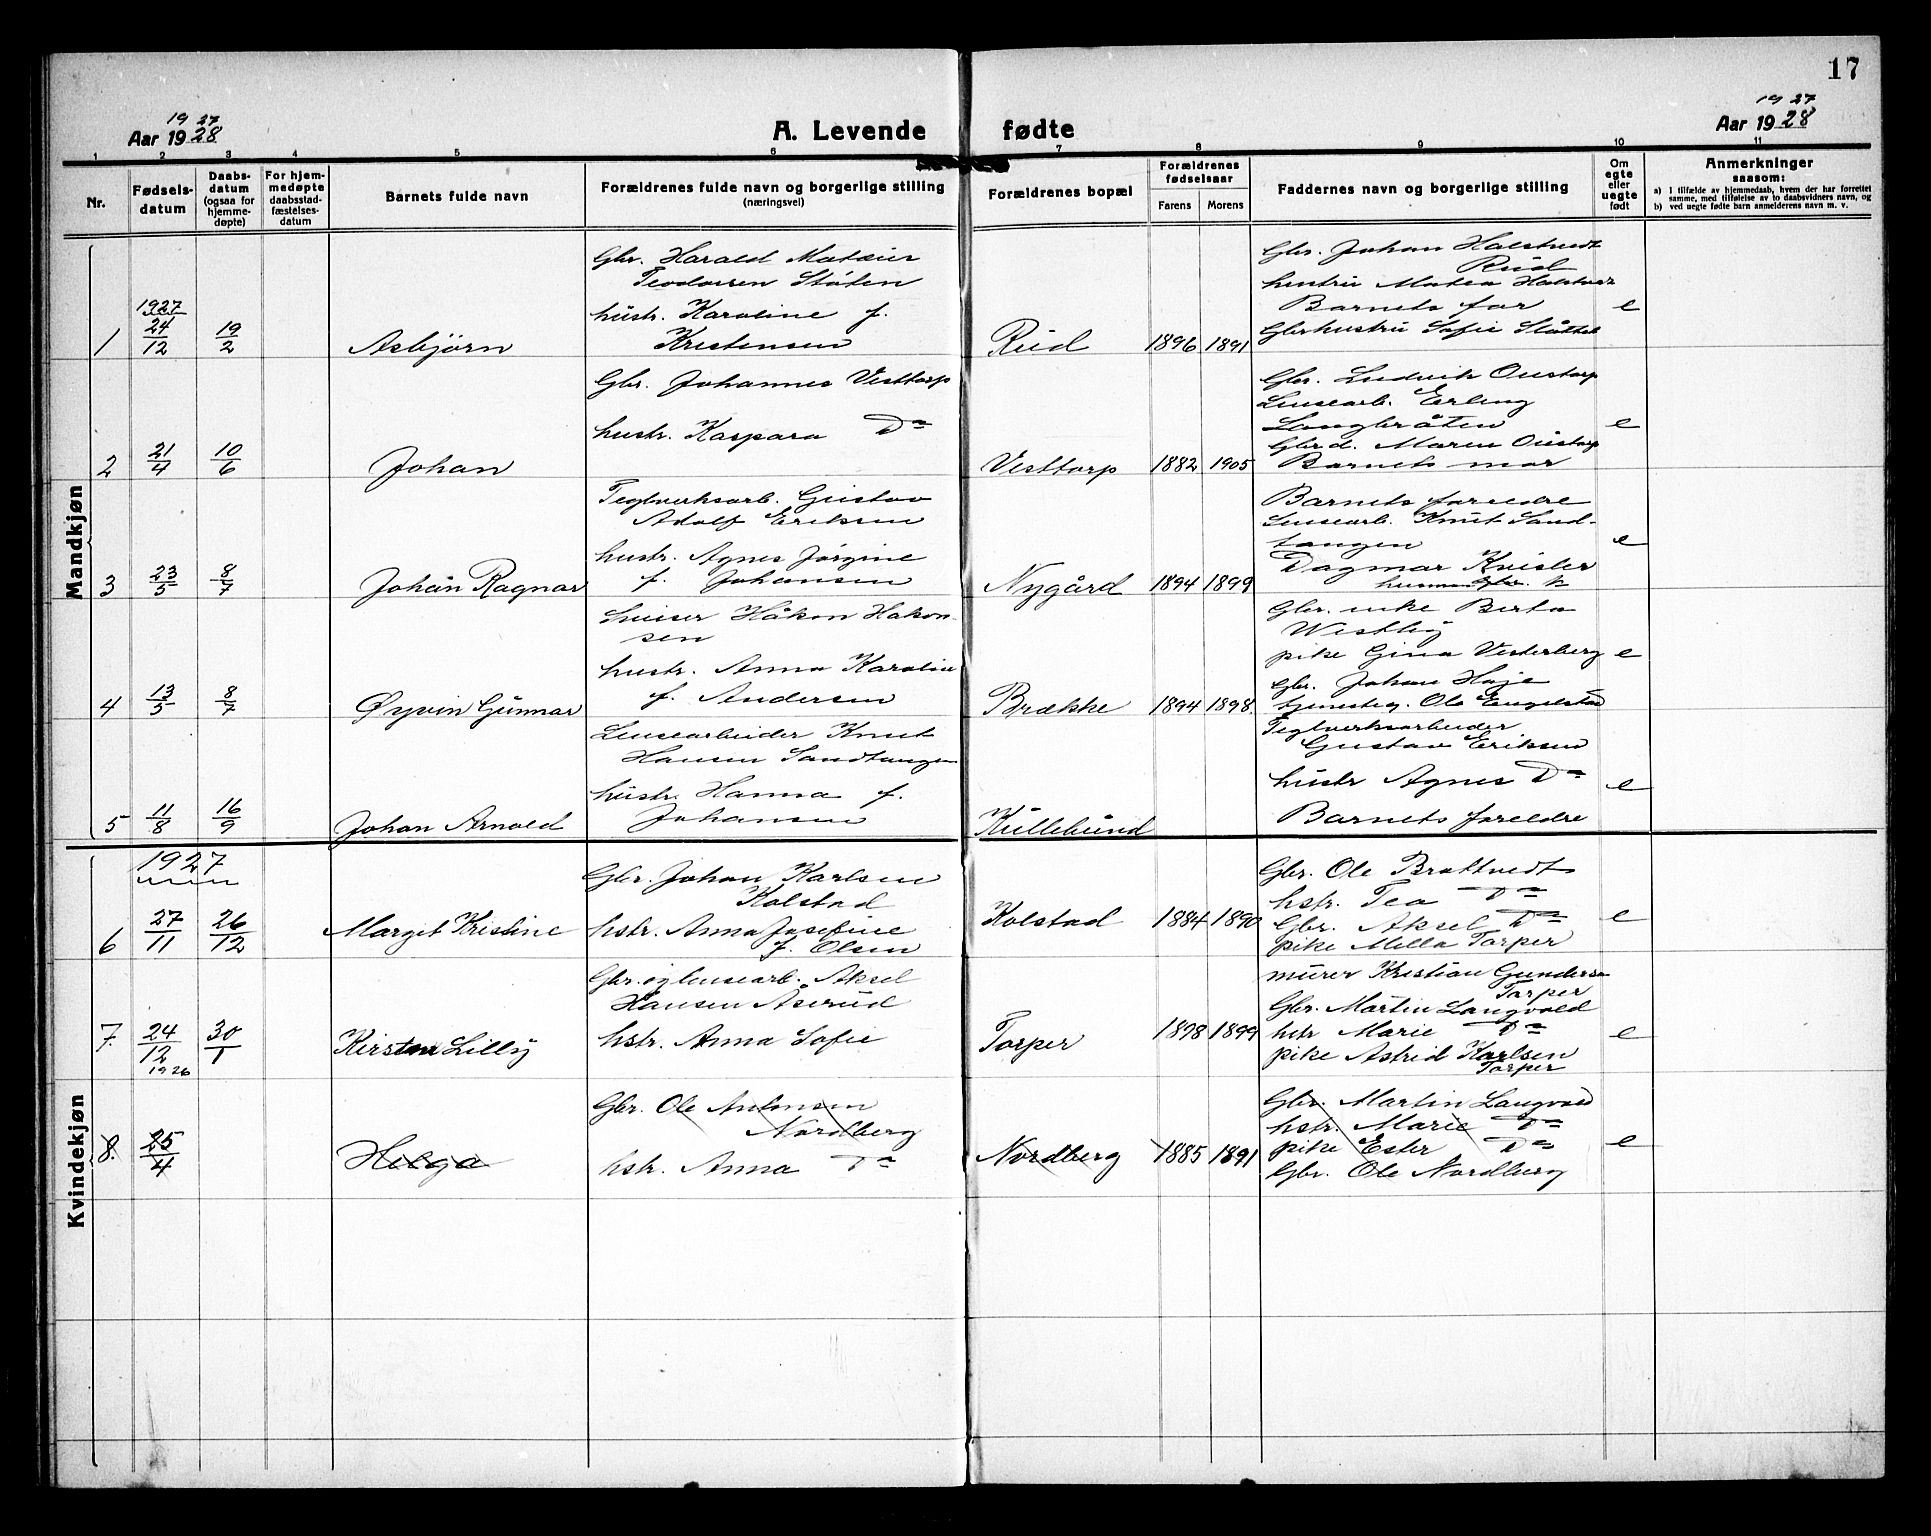 17
19 27
Aar 19 28
A. Levende fødte
19 27
Aar 19 28
1 2 3 4 5 6 7 8 9 10 11
Nr.
Fødsels-
datum
Daabs-
datum
(ogsaa for
hjemme-
døpte)
For hjem-
medøpte
daabsstad-
fæstelses-
datum
Barnets fulde navn
Forældrenes fulde navn og borgerlige stilling
(næringsvei)
Forældrenes bopæl
Forældrenes
fødselsaar
Farens Morens
Faddernes navn og borgerlige stilling
Om
egte
eller
uegte
født
Anmerkninger
saasom:
a) I tilfælde av hjemmedaab, hvem der har forrettet
samme, med tilføielse av to daabsvidners navn, og
b) ved uegte fødte barn anmelderens navn m. v.
Mandkjøn
1 1927 24/12 19/2 Asbjørn
Gbr. Harald
Teodorsen Støten
hustr. Karoline f.
Kristensen
Rud 1896 1891
Gbr. Johan Holstvedt
Rud
hustru Matea
Barnets far
Gbrhustru Sofie
e
2 21/4 10/6 Johan
Gbr. Johannes Vesttorp
hustr. Kaspara Do
Vesttorp 1882 1905
Gbr. Ludvik Oustorp
Lensearb. Erling
Langbråten
Gbrd. Maren Oustorp
Barnets mor
e
3 23/5 8/7 Johan Ragnar
Teglverksarb. Gustav
Adolf Eriksen
hustr. Agnes Jørgine
f. Johansen
Nygård 1894 1899
Barnets foreldre
Lensearb. Knut Sand-
tangen
Dagmar Kvisler
e
4 13/5 8/7 Øyvin Gunnar
Håkon Hakon-
sen
hustr. Anna Karolin
f. Andersen
Brække 1894 1898.
Gbr. enke Berta
Westby
pike Gina Vesterberg
Gbr. Johan Haje
Ole Engelstad
e
5 11/8 16/9 Johan Arnold
Lensearbeider Knut
Hansen Sandtangen
hustr. Hanna f.
Johansen
Kullebund
Teglverksarbeider
Gustav Eriksen
hustr Agnes Do
Barnets foreldre
e
Kvindekjøn
1927
6 27/11 26/12 Margit Kristine
Gbr. Johan Karlsen
Kolstad
hstr. Anna Josefine
f. Olsen
Kolstad 1884 1890
Gbr. Ole Brattvedt
hstr. Tea Do
Gbr. Aksel Do
pike Mella Torper
e
7. 24/12 1926 30/1 Kirsten Lilly
Gbr. og lensearb. Aksel
Hansen Åserud
hstr. Anna Sofie
Torper 1898 1899
murer Kristian Gundersen
Torper
Gbr. Martin Langvold
hstr Marie Do
pike Astrid Karlsen
Torper
e
8. 25/4 Helga
Gbr. Ole Antonsen
Nordberg
hstr. Anna Do
Nordberg 1885 1891
Gbr. Martin Langvold
hstr. Marie Do
pike Ester Do
Gbr. Ole Nordberg
e